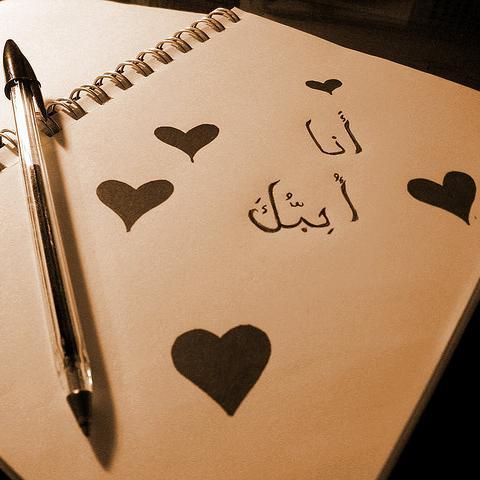 أَنا
أُحِبُّكَ